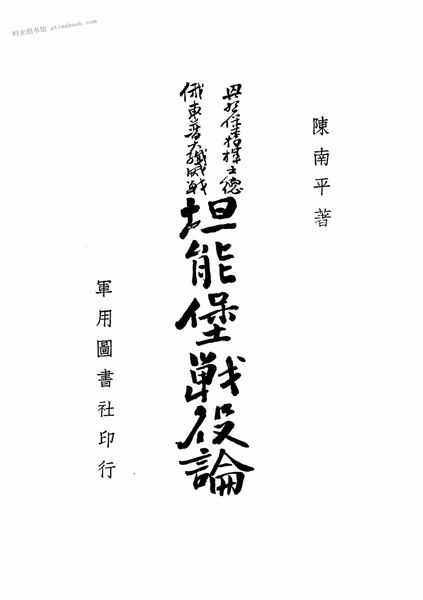 时光图书馆 atimebook.com
陳南平著
興登堡指揮之德
俄東普大殲滅戰
坦能堡戰役論
軍用圖書社印行